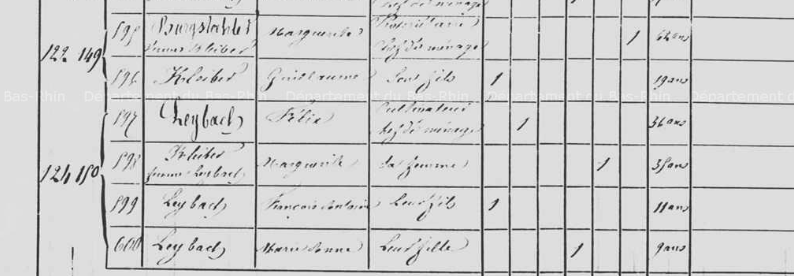 595 Burgstahler Marguerite Propriétaire 1 62 ans
femme Kleiber Chef de ménage
122 149
596 Kleiber Guillaume Son fils 1 19 ans
597 Leybach Félix Cultivateur 1 36 ans
chef de ménage
598 Kleiber Marguerite Sa femme 1 35 ans
124 150 femme Leybach
599 Leybach François Antoine Leur fils 1 11 ans
600 Leybach Marie Anne Leur fille 1 9 ans
Bas-Rhin Département du Bas-Rhin Département du Bas-Rhin Département du Bas-Rhin Département du Bas-Rhin